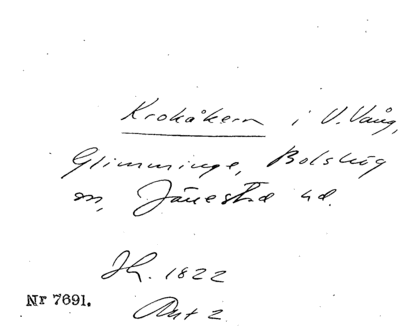 Krokåkern i V. Vång,
Glimminge, Bolshög
sn, Jänestad hd.
Sk. 1822
Nr 7691.
Akt 2